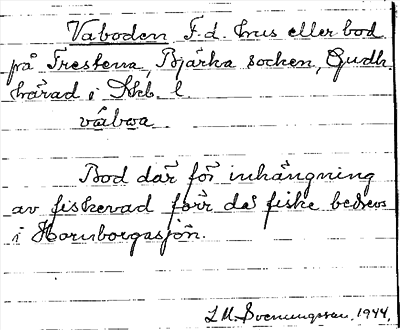 Vaboden F.d. hus eller bod
på Trestena, Bjärka socken, Gudh.
härad i Skb. l
våbωa
Bod där för inhängning
av fiskevad förr då fiske bedrevs
i Hornborgasjön.
L.M. Svenungsson, 1944,